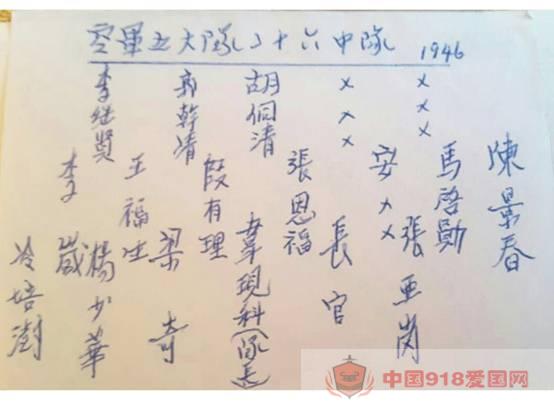 空軍五大隊二十六中隊 1946
李继贤
郭幹清
胡侗清
×××
×××
李 崴
王福生
段有理
張恩福
安××
馬啓勛
陳景春
冷培澍
楊少華
梁奇
韋現科(隊長)
長官
張亜岗
中国918爱国网